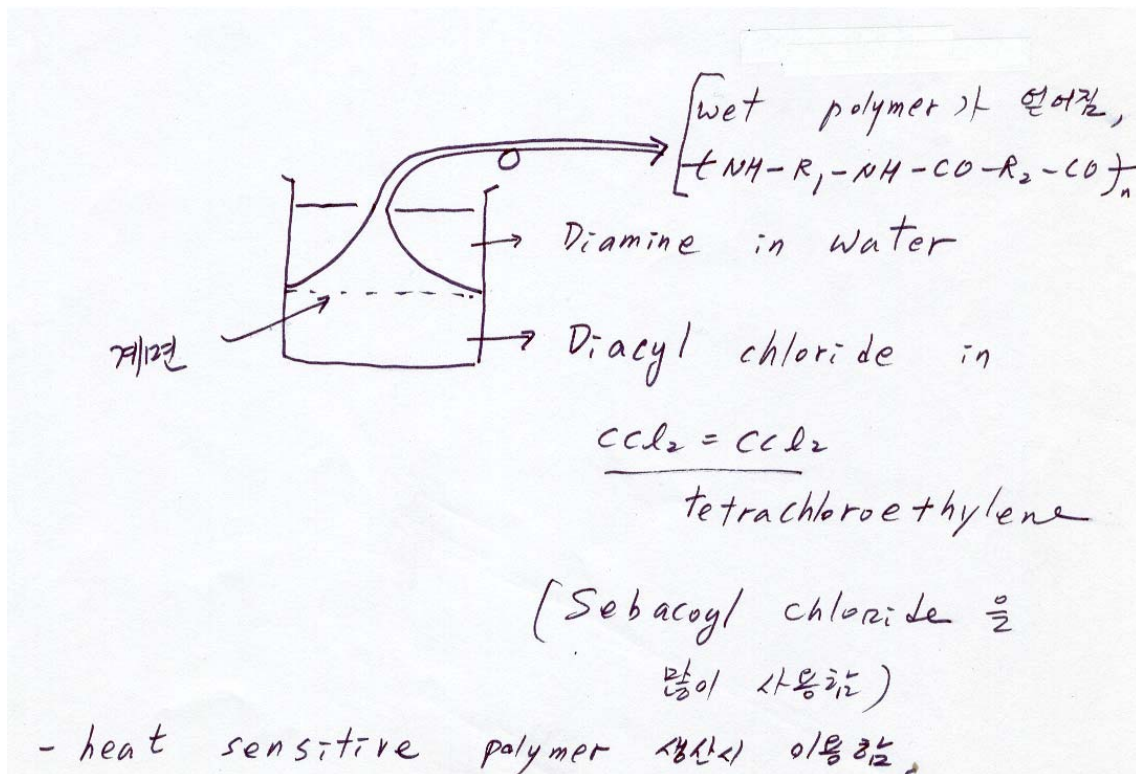 wet polymer가 얻어짐,
[NH-R₁-NH-CO-R₂-CO]ₙ
Diamine in water
계면
Diacyl chloride in
CCl₂ = CCl₂
tetrachloroethylene
(Sebacoyl chloride 을
많이 사용함)
- heat sensitive polymer 생산시 이용함.